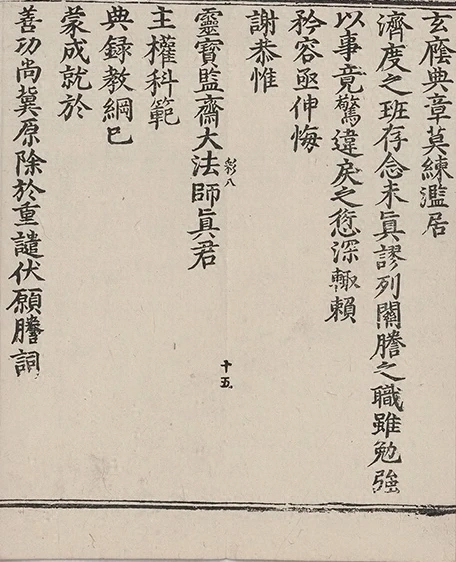 玄廕典章莫練濫居
濟度之班存念未眞謬列關謄之職雖勉強
以事竟驚違戾之愆深輙賴
矜容亟伸悔
謝恭惟
八
十五
靈寶監齋大法師眞君
主權科範
典録教綱已
蒙成就於
善功尚冀原除於重譴伏願謄詞